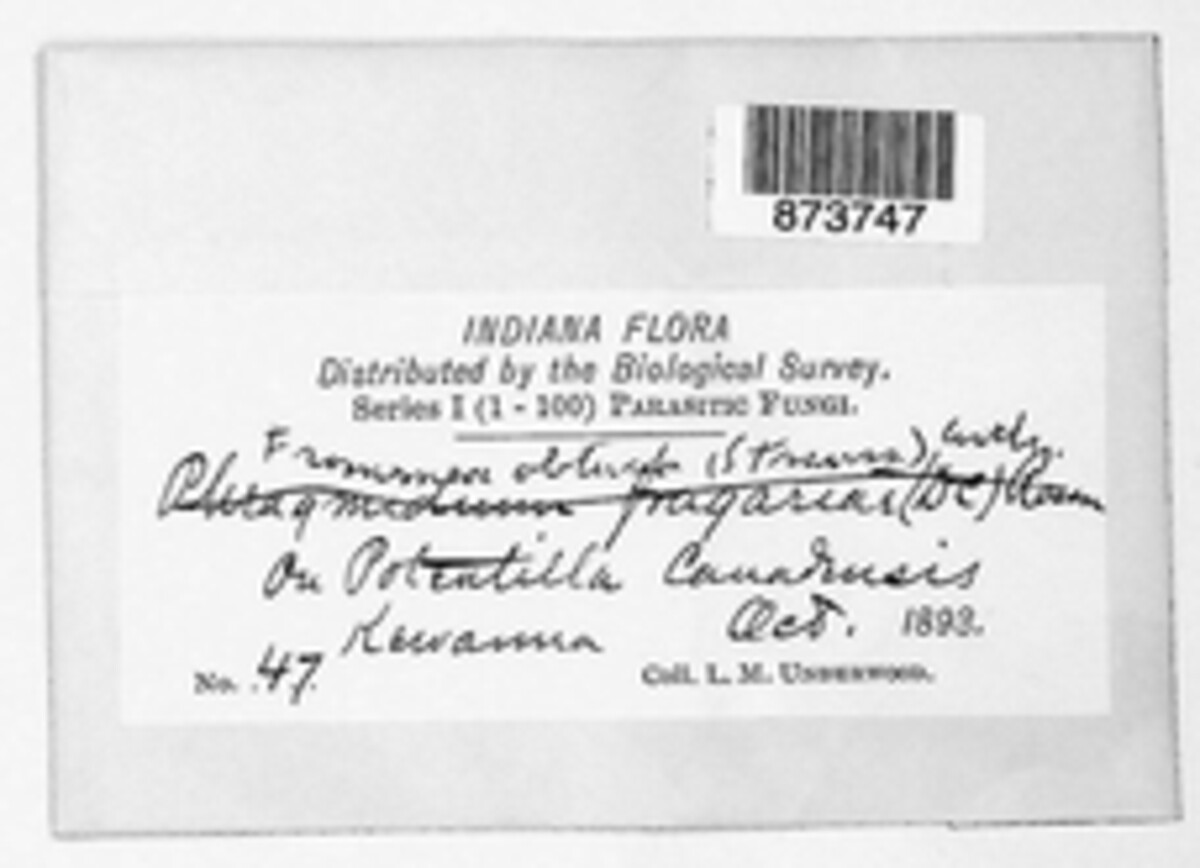 873747
INDIANA FLORA
Distributed by the Biological Survey.
Series I (1 - 100) PARASITIC FUNGI.
Frommea obtusa (Strauss) Arth.
Phragmidium fragariae (DC) Rossm
On Potentilla Canadensis
Kewanna Oct. 1893.
No. 47. Coll. L. M. UNDERWOOD.